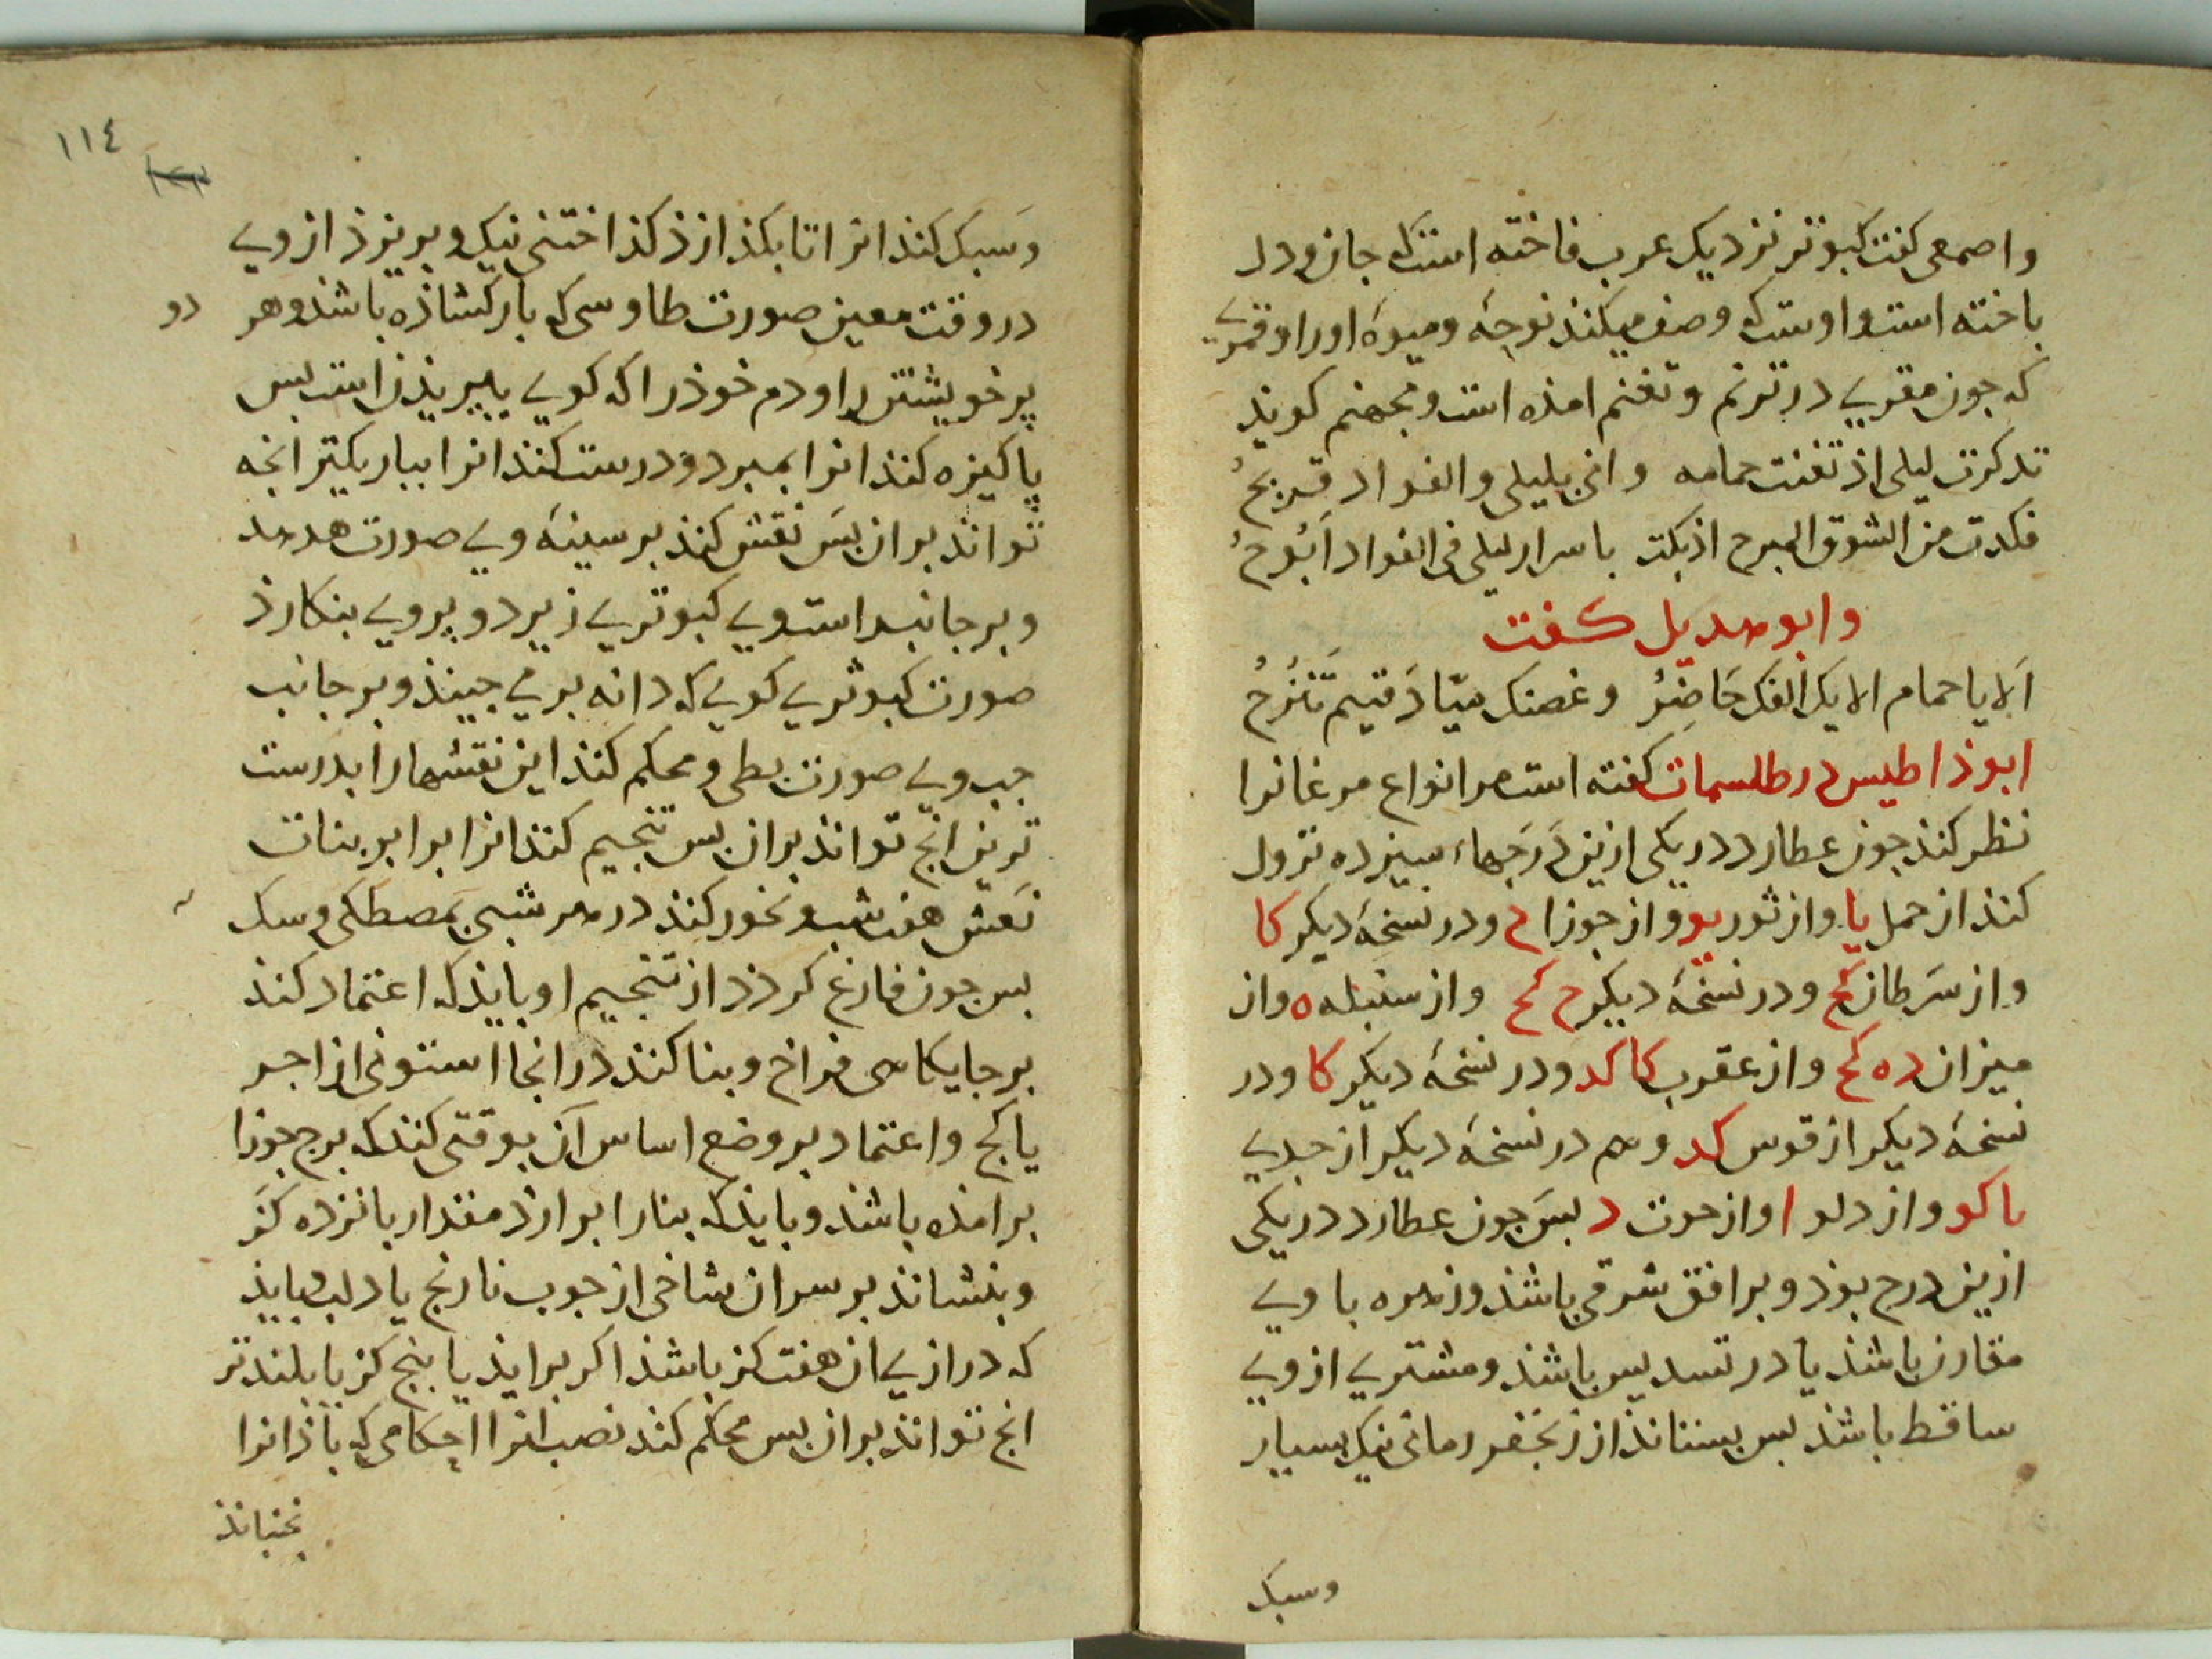 واصمعی کفت کبوتر نزدیک عرب فاخته است که جان ودل
باخته است واوست که وصف میکنند نوحهٔ ومیوهٔ اورا وقمری
که جون مقریی در ترنم وتغنم امذه است ومجهنم کویند
تدکرت لیلی اذ تغنت حمامه وانی بلیلی والفواد قریحُ
فکدت من الشوق المبرح اذ بکت باسرار لیلی فی الفواد اَبُوحُ
وابو هدیل کفت
اَلا یا حمام الایک الفک حَاضِرُ وغصنک میّاد فتیم تَنُوحُ
ابوذاطیس در طلسمات کفته است مر انواع مرغانرا
نظر کنند جون عطارد در یکی ازین دَرَجهاء سیزده نزول
کند از حمل یا واز ثور یو واز جوزا ح ودر نسخهٔ دیکر کا
واز سَرطان کح ودر نسخهٔ دیکر ح کح واز سنبله ه واز
میزان ده کح واز عقرب کا کد ودر نسخهٔ دیکر کا ودر
نسخهٔ دیکر از قوس کد وهم در نسخهٔ دیکر از جدیی
یا کو واز دلو ا واز حوت د بسَ جون عطارد در یکی
ازین درج بوذ وبر افق شرقی باشذ وزهره با ویی
مقارن باشذ یا در تسدیس باشذ ومشتریی از ویی
ساقط باشذ بس بستانذ از زنجفر رمانی نیک بسیار
وسبک
١١٤
وسَبک کنذ انرا تا بکذازذ کذاختنی نیک وبریزذ از ویی
در وقت معین صورت طاوسی که بار کشاذه باشذ وهر دو
پر خویشتن را ودم خوذ را که کویی بپریذن است بس
پاکیزه کنذ انرا بمبرد ودرست کنذ انرا بباریکتر انجه
توانذ بران بسَ نقش کنذ بر سینهٔ ویی صورت هدهد
وبر جانب راست ویی کبوتریی زیرد وبروی بنکارذ
صورت کبوتریی کویی که دانه بر می جینذ وبر جانب
جب ویی صورت بطی ومحکم کنذ این نقشهارا بدرست
ترین انج توانذ بران بس تنجیم کنذ انرا برابر بنات
نَعش هفت شب وبخور کنذ در هر شبی بمصطکی وسک
بس جون فارغ کردذ از تنجیم او بایذ که اعتماد کنذ
بر جایکاهی فراخ وبنا کنذ در انجا استونی از اجر
یا کج واعتماد بر وضع اساس آن بوقتی کنذ که برج جوزا
بر امذه باشذ وبایذ که بنارا برارذ مقدار بانزده کز
وبنشانذ بر سران شاخی از جوب نارنج یا دلب بایذ
که درازیی ان هفت کز باشذ اکر برایذ یا بنج کز یا بلندتر
انج توانذ بران بس محکم کنذ نصب انرا احکامی که باذ انرا
نجنبانذ